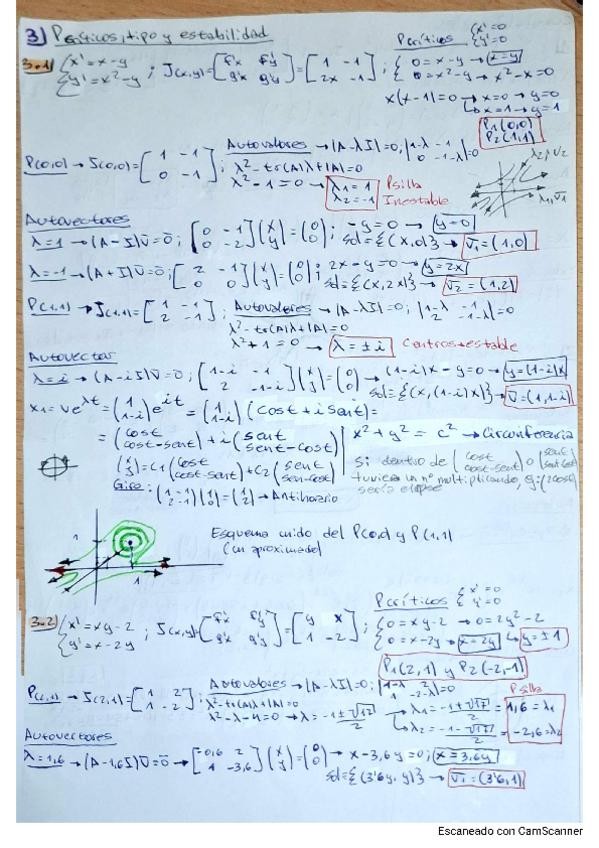 3) P.críticos, tipo y estabilidad
P.críticos {x'=0 y'=0
3.1) {x'=x-y y'=x²-y ; J(x,y)=[f'x f'y g'x g'y]=[1 -1 2x -1] ; {0=x-y→x=y 0=x²-y→x²-x=0
x(x-1)=0→x=0→y=0
x=1→y=1
P1(0,0)
P2(1,1)
P(0,0)→J(0,0)=[1 -1 0 -1]; Autovalores→|A-λI|=0; |1-λ -1 0 -1-λ|=0
λ²-tr(A)λ+|A|=0
λ²-1=0→λ1=1 λ2=-1 P.silla Inestable
λ2,v2
λ1,v1
Autovectores
λ=1→(A-I)v=0; [0 -1 0 -2](x y)=(0 0); -y=0→y=0; sol={(x,0)}→v1=(1,0)
λ=-1→(A+I)v=0; [2 -1 0 0](x y)=(0 0); 2x-y=0→y=2x sol={(x,2x)}→v2=(1,2)
P(1,1)→J(1,1)=[1 -1 2 -1]; Autovalores→|A-λI|=0; |1-λ -1 2 -1-λ|=0
λ²-tr(A)λ+|A|=0
λ²+1=0→λ=±i Centros→estable
Autovector
λ=i→(A-iI)v=0; [1-i -1 2 -1-i](x y)=(0 0)→(1-i)x-y=0→y=(1-i)x
sol={(x,(1-i)x)}→v=(1,1-i)
x1=ve^λt=(1 1-i)e^it=(1 1-i)(cost+isent)=
=(cost cost-sent)+i(sent sent-cost) | x²+y²=c²→Circunferencia
(x y)=c1(cost cost-sent)+c2(sent sen-cost) | Si dentro de (cost cost-sent) o (sent sent-cost)
tuviera un nº multiplicando, ej:(2cost)
sería elipse
Giro: (1 -1 2 -1)(1 0)=(1 2)→Antihorario
Esquema unido del P(0,0) y P(1,1)
P.críticos {x'=0 y'=0
3.2) {x'=xy-2 y'=x-2y ; J(x,y)=[f'x f'y g'x g'y]=[y x 1 -2]; {0=xy-2→0=2y²-2 0=x-2y→x=2y→y=±1
P1(2,1) y P2(-2,-1)
P(2,1)→J(2,1)=[1 2 1 -2]; Autovalores→|A-λI|=0; |1-λ 2 1 -2-λ|=0
P.silla
λ²-tr(A)λ+|A|=0
λ²-λ-4=0→λ=-1±√17/2→λ1=-1+√17/2=1,6=λ1
λ2=-1-√17/2=-2,6=λ2
Autovectores
λ=1,6→(A-1,6I)v=0→[-0,6 2 1 -3,6](x y)=(0 0)→x-3,6y=0; x=3,6y
sol={(3'6y,y)}→v1=(3'6,1)
Escaneado con CamScanner